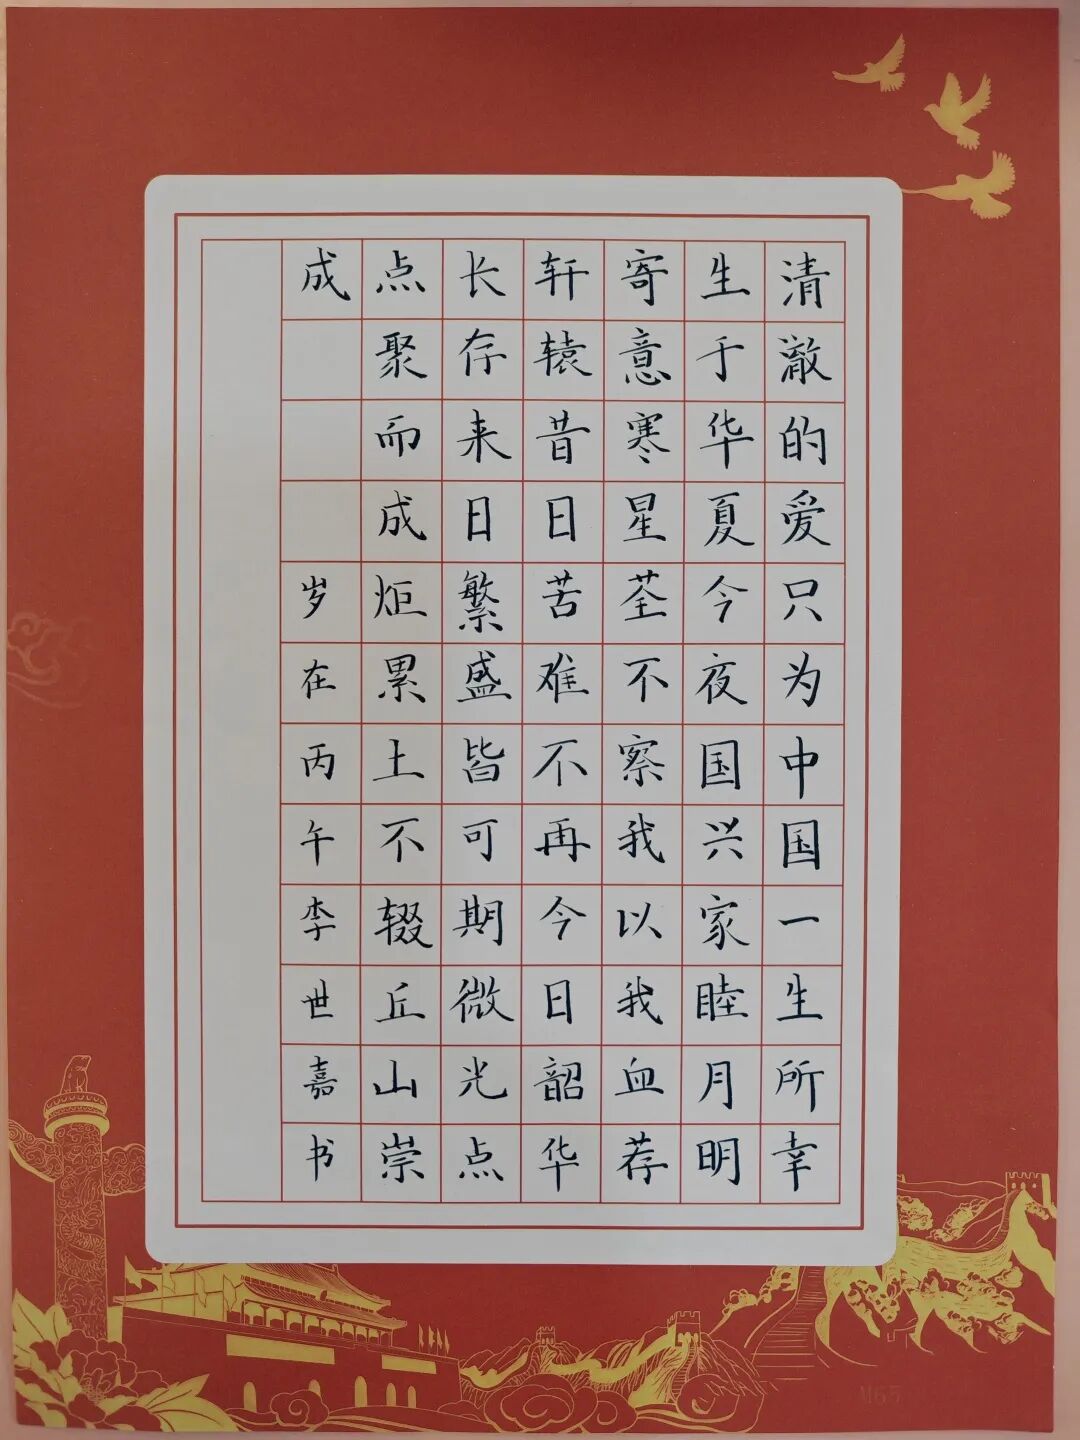 清澈的爱只为中国一生所幸
生于华夏今夜国兴家睦月明
寄意寒星荃不察我以我血荐
轩辕昔日苦难不再今日韶华
长存来日繁盛皆可期微光点
点聚而成炬累土不辍丘山崇
成
岁在丙午李世嘉书
M65